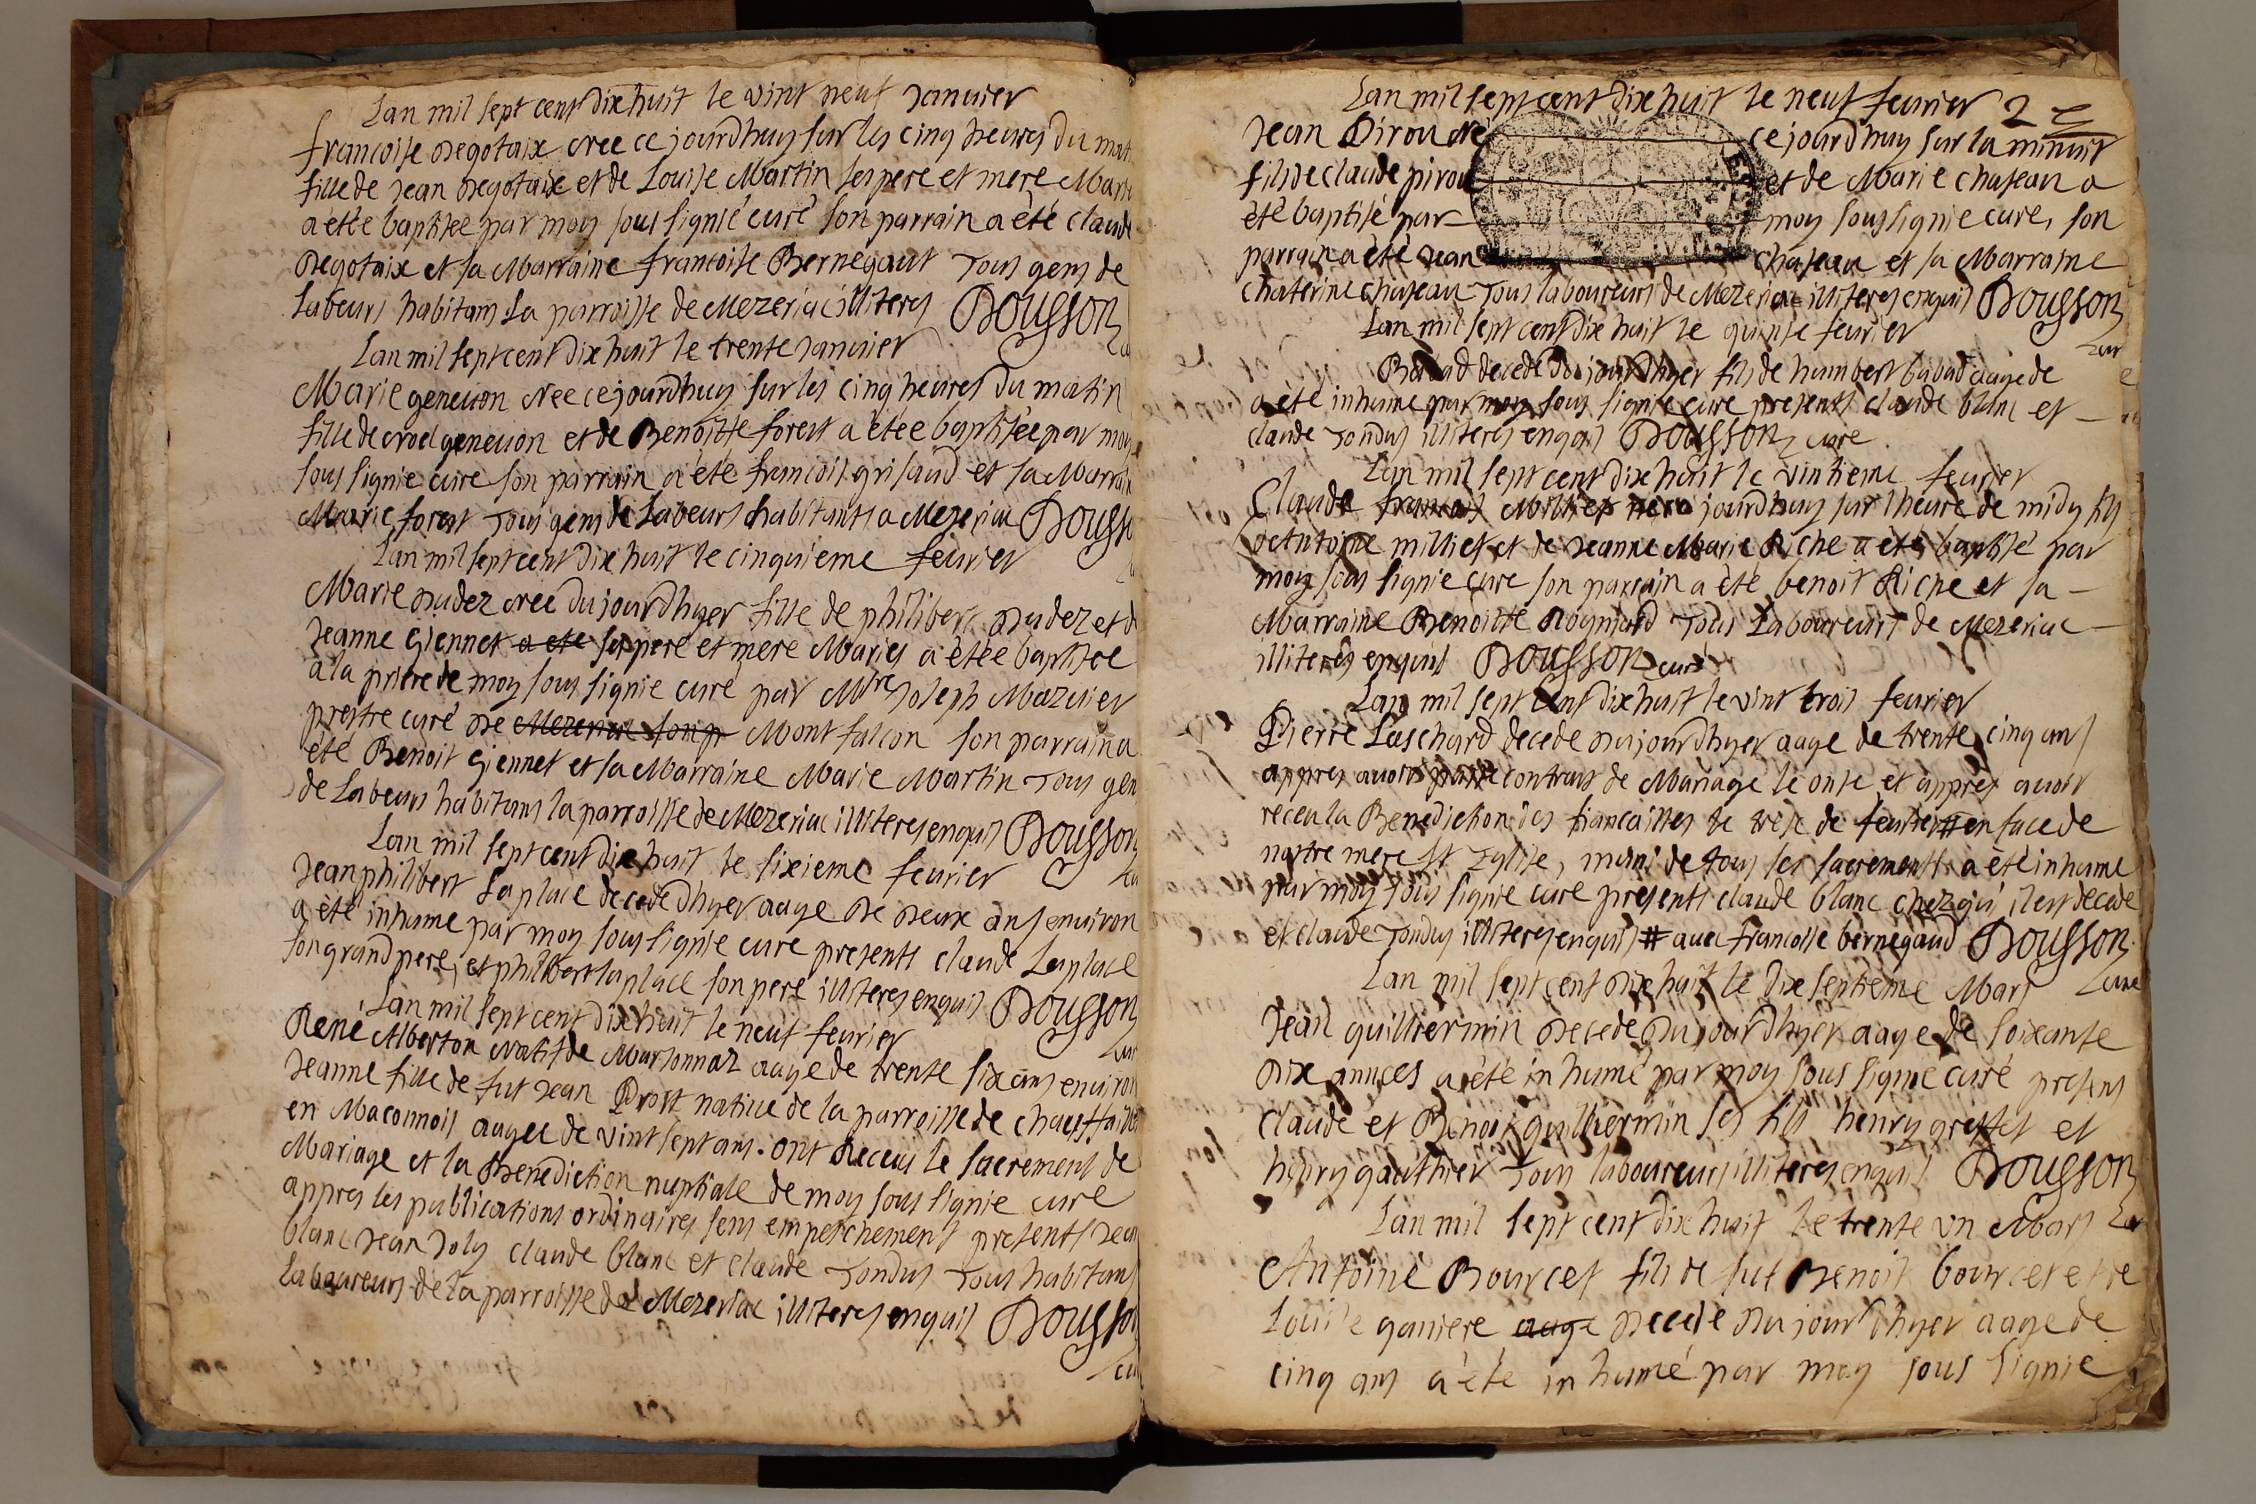 Lan mil sept cent dix huit le vint neuf Janvier
francoise Degotaix née ce jourdhuy sur les cinq heures du mat
fille de Jean Degotaix et de Louise Martin ses pere et mere Marie
a etée baptisée par moy sous signié curé son parrain a été claude
Degotaix et sa Marraine francoise Bernegaut Tous gens de
Labeurs habitans La parroisse de Mezeriac illiteres Dousson
Lan mil sept cent dix huit le trente Janvier cu
Marie genevon née ce jourdhuy sur les cinq heures du matin
fille de Noel genevon et de Benoitte forest a étée baptisée par moy
sous signie cure son parrain a été francois grisaud et sa Marrain
Marie forest Tous gens de Labeurs habitants a Mezeriac Dousso
Lan mil sept cent dix huit le cinquieme fevrier
Marie Dudez née du jourdhyer fille de philibert Dudez et d
Jeanne Giennet a eté ses pere et mere Maries a étée baptisée
a la priere de moy sous signie curé par Mtre Joseph Mazuier
prestre curé de Mezeriac son pr Montfalcon son parrain a
été Benoit Giennet et sa Marraine Marie Martin Tous gen
de Labeurs habitans la parroisse de Mezeriac illiteres enquis Dousson
Lan mil sept cent dix huit le sixieme fevrier cu
Jean philibert Laplace decedé dhyer aage de deux ans environ
a été inhumé par moy sous signie cure presents claude Laplace
son grand pere, et philibert laplace son pere illiteres enquis Dousson
Lan mil sept cent dix huit le neuf fevrier cur
René Alberton Natif de Marsonnaz aage de trente six ans environ
Jeanne fille de fut Jean Prost native de la parroisse de chauffaille
en Maconnois aagee de vint sept ans. ont Receus le sacrement de
Mariage et la Benediction nuptiale de moy sous signie cure
appres les publications ordinaires sens empeschement presents Jean
blanc Jean Joly claude blanc et claude Tondus Tous habitans
Laboureurs de la parroisse de Mezeriac illiteres enquis Dousson
cu
Lan mil sept cent dix huit le neuf fevrier 2
Jean Pirou né ce jourdhuy sur la minuit
fils de claude pirou et de Marie chaseau a
été baptisé par moy sous signie cure, son
parrain a été Jean chaseau et sa Marraine
chaterine chaseau Tous laboureurs de Mezeriac illiteres enquis Dousson
Lan mil sept cent dix huit le quinse fevrier cur
Babad decede du jourdhyer fils de humbert babad aage de
a été inhume par moy sous signie cure presents claude blanc et
claude Tondus illiteres enquis Dousson cure
Lan mil sept cent dix huit le vintieme fevrier
Claude francois Milliet jourdhuy sur lheure de midy fils
d'Antoine milliet et de Jeanne Marie Riche a été baptisé par
moy sous signie cure son parrain a été benoit Riche et sa
Marraine Benoitte Tous Laboureurs de Mezeriac
illiteres enquis Dousson curé
Lan mil sept cent dix huit le vint trois fevrier
Pierre Laschard decede du jourdhyer aage de trente cinq ans
appres avoir passé contract de Mariage le onse et appres avoir
receu la Benediction des fiancailles le trese de fevrier # en face de
nostre mere St Eglise, muni de tous ses sacrements a été inhume
par moy sous signie cure presents claude blanc chez qui il est decede
et claude Tondus illiteres enquis # avec francoise bernegaud Dousson
Lan mil sept cent dix huit le dix septieme Mars cure
Jean quilliermin decede du jourdhyer aage de soixante
dix annees a été inhumé par moy sous signie curé presens
claude et Benoit quilliermin ses fils henry greffet et
henry gauthier Tous laboureurs illiteres enquis Dousson
Lan mil sept cent dix huit le trente un Mars cur
Antoine Bourcet fils de fut Benoit bourcet et de
Louise ganiere aage decede du jourdhyer aage de
cinq ans a été inhumé par moy sous signie